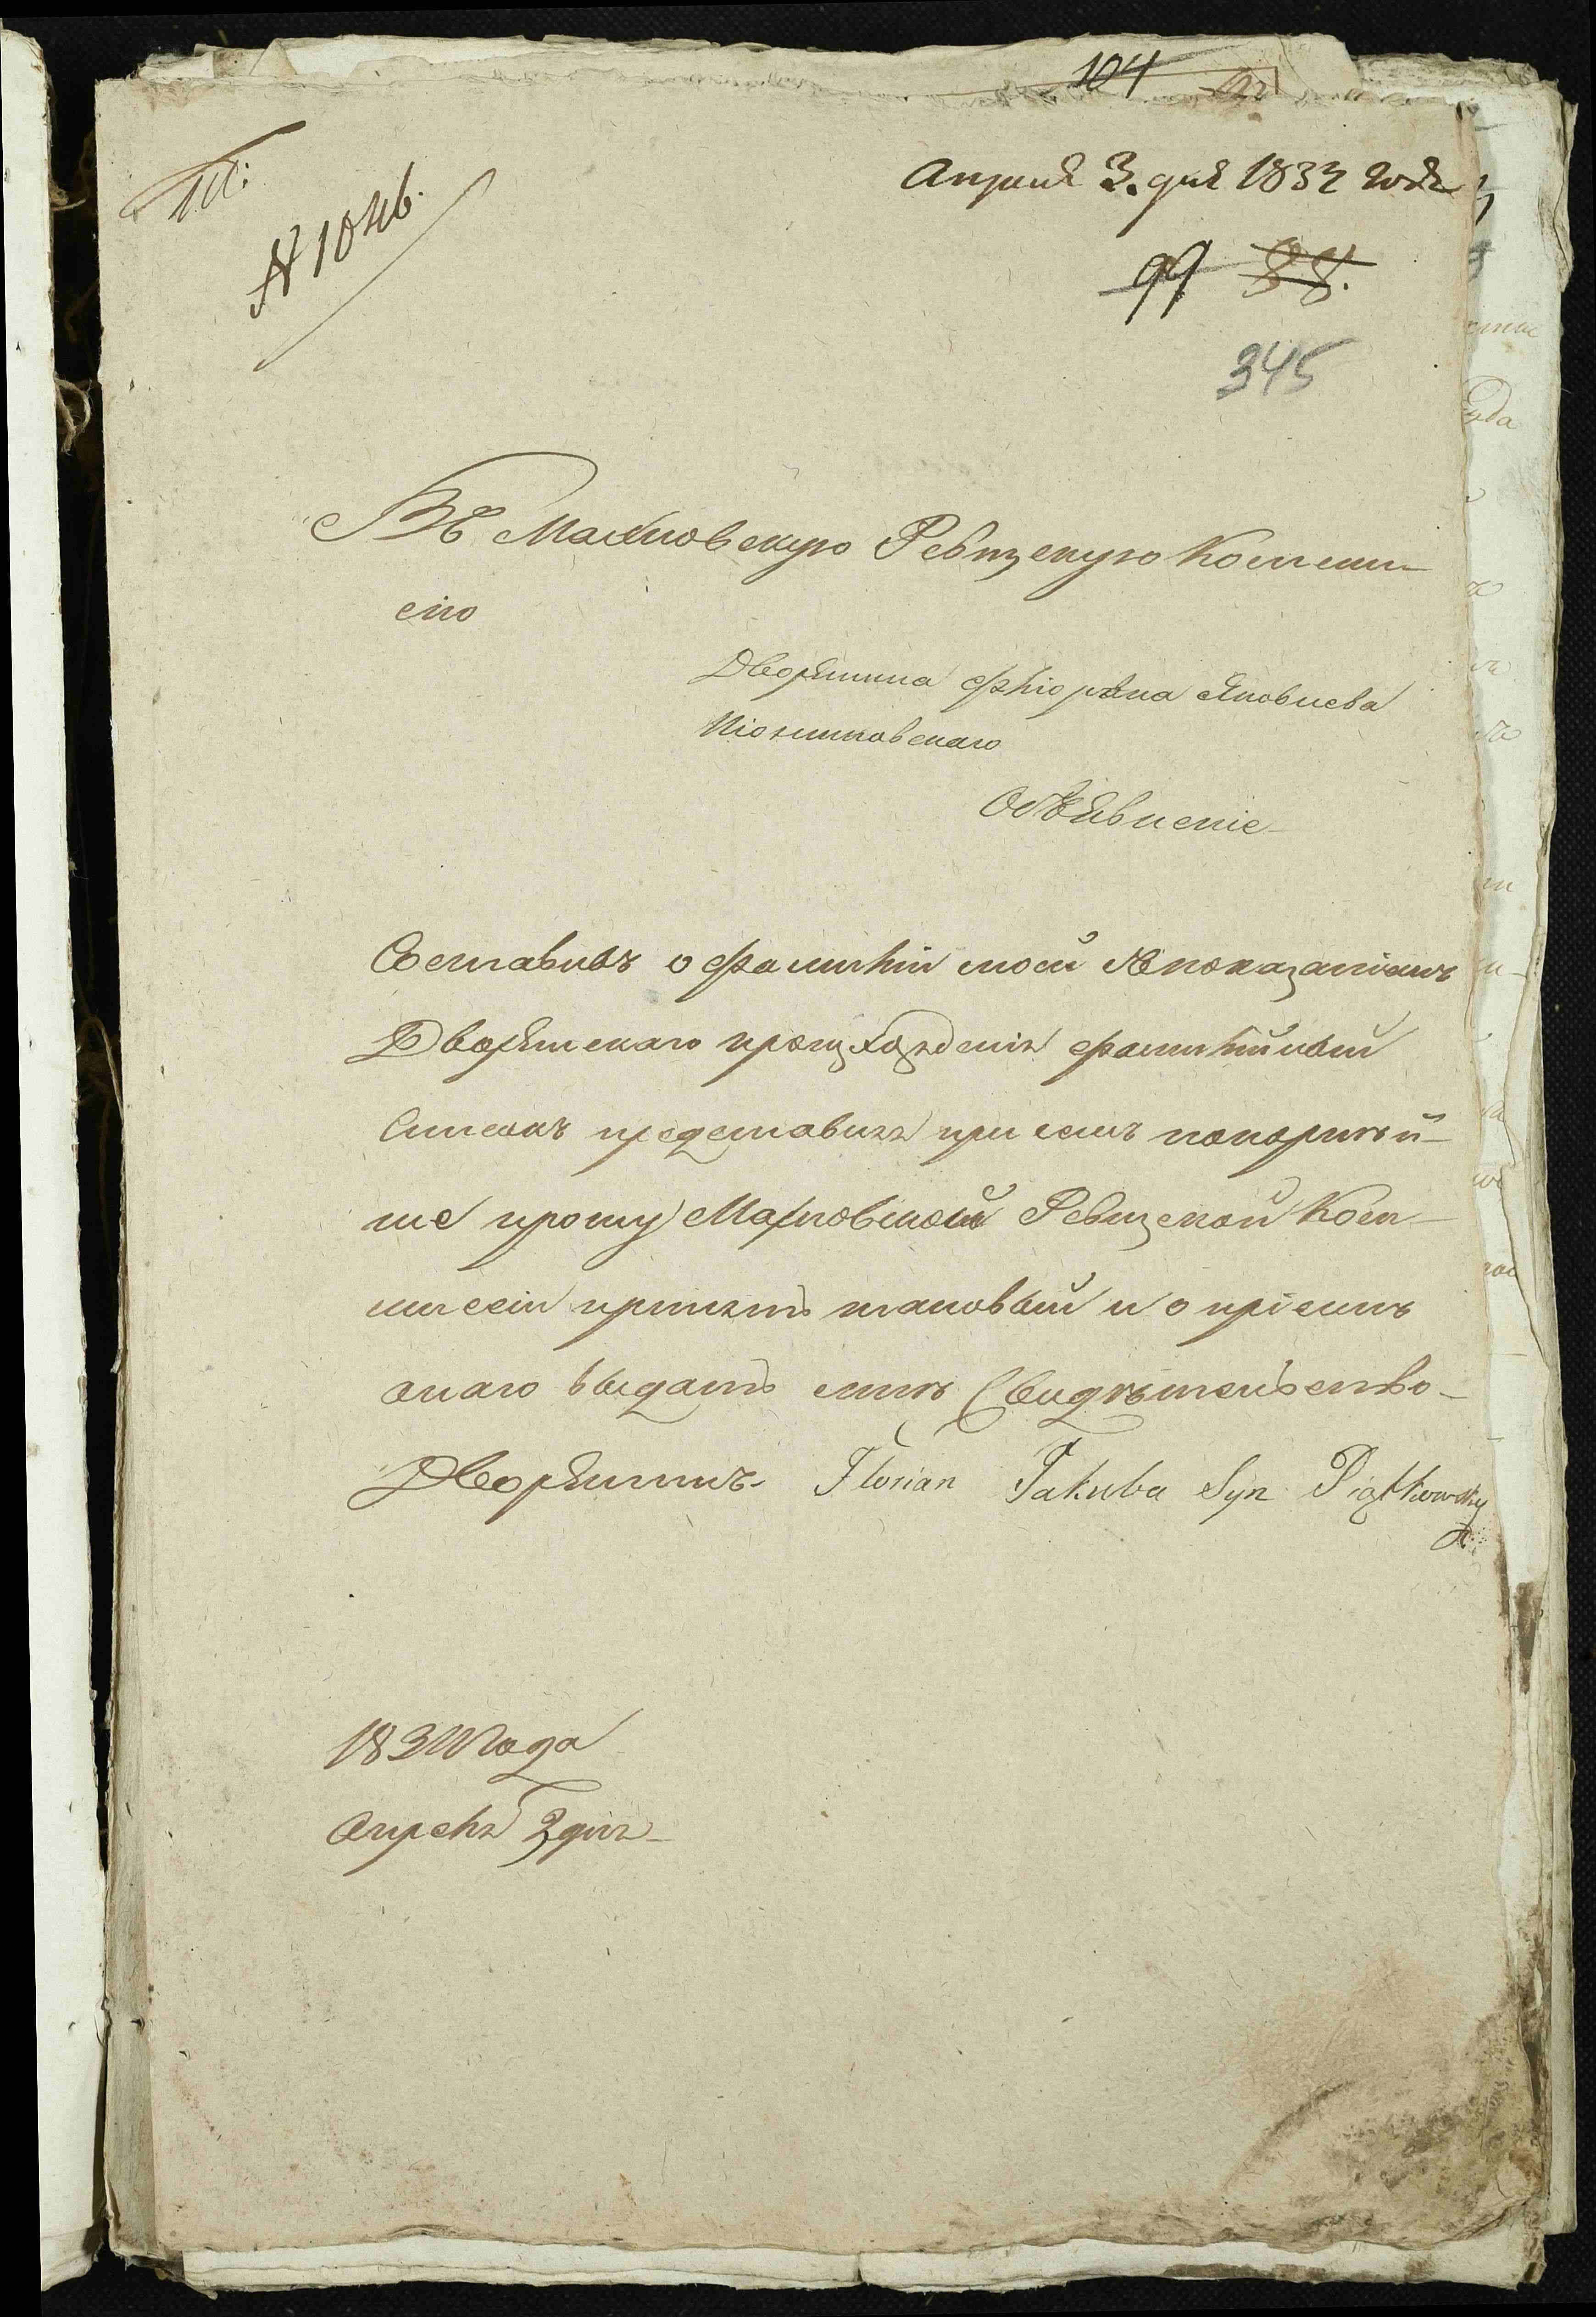 104
Апреля 3. дня 1834 года
№ 1046.
99 88.
345
Въ Махновскую Ревизскую Комми-
сію
Дворянина Флоріяна Яковлева
Піонтковскаго
Объявленіе
Составивъ о фамиліи моей къ показаніямъ
Дворянскаго произхожденія фамилійный
Списокъ представляя при семъ покорнѣй-
ше прошу Махновской Ревизской Ком-
миссіи принять таковый и о пріемѣ
онаго выдать мнѣ Свидѣтельство
Дворянинъ Florian Jakuba Syn Piątkowsky
1834 Года
Апреля 3 дня